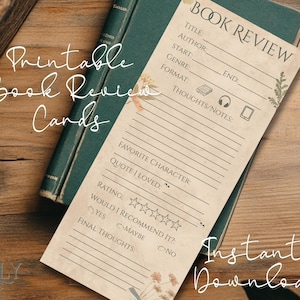 BOOK REVIEW
TITLE:
AUTHOR:
START: END:
GENRE:
FORMAT:
THOUGHTS/NOTES:
FAVORITE CHARACTER:
QUOTE I LOVED:
RATING:
WOULD I RECOMMEND IT?
YES MAYBE NO
FINAL THOUGHTS:
Printable
Book Review
Cards
Instant
Download